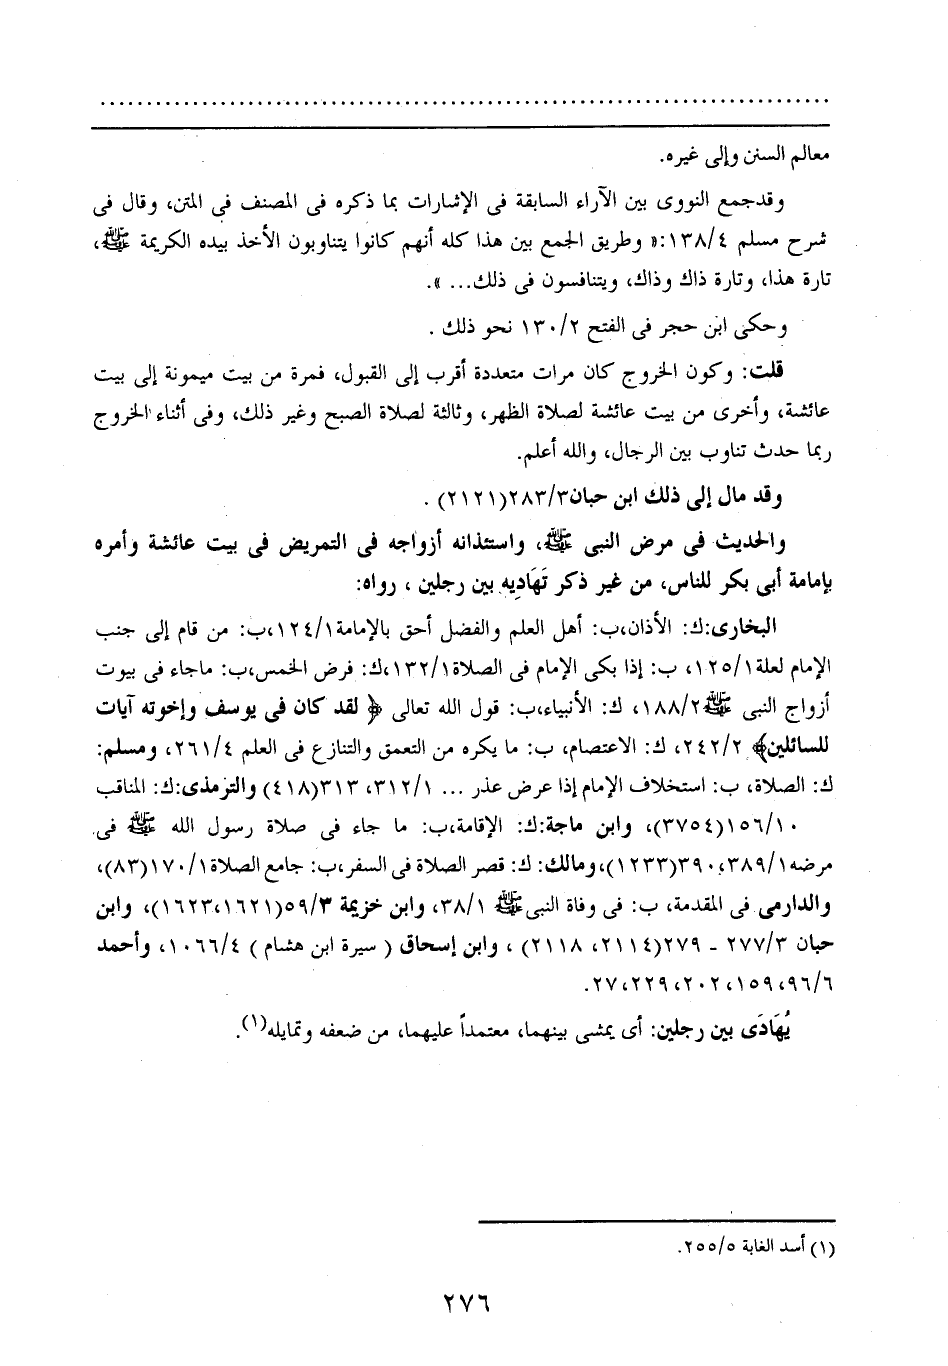 معالم السنن وإلى غيره.
وقدجمع النووى بين الآراء السابقة فى الإشارات بما ذكره فى المصنف فى المتن، وقال فى
شرح مسلم ١٣٨/٤:« وطريق الجمع بين هذا كله أنهم كانوا يتناوبون الأخذ بيده الكريمة ﷺ،
تارة هذا، وتارة ذاك وذاك، ويتنافسون فى ذلك... ».
وحكى ابن حجر فى الفتح ١٣٠/٢ نحو ذلك .
قلت: وكون الخروج كان مرات متعددة أقرب إلى القبول، فمرة من بيت ميمونة إلى بيت
عائشة، وأخرى من بيت عائشة لصلاة الظهر، وثالثة لصلاة الصبح وغير ذلك، وفى أثناء الخروج
ربما حدث تناوب بين الرجال، والله أعلم.
وقد مال إلى ذلك ابن حبان٢٨٣/٣(٢١٢١) .
والحديث فى مرض النبى ﷺ، واستئذانه أزواجه فى التمريض فى بيت عائشة وأمره
بإمامة أبى بكر للناس، من غير ذكر تَهَادِيه بين رجلين ، رواه:
البخارى:ك: الأذان،ب: أهل العلم والفضل أحق بالإمامة١٢٤/١،ب: من قام إلى جنب
الإمام لعلة١٢٥/١، ب: إذا بكى الإمام فى الصلاة١٣٢/١،ك: فرض الخمس،ب: ماجاء فى بيوت
أزواج النبى ﷺ١٨٨/٢، ك: الأنبياء،ب: قول الله تعالى ﴿ لقد كان فى يوسف وإخوته آيات
للسائلين﴾ ٢٤٢/٢، ك: الاعتصام، ب: ما يكره من التعمق والتنازع فى العلم ٢٦١/٤، ومسلم:
ك: الصلاة، ب: استخلاف الإمام إذا عرض عذر ... ٣١٢/١، ٣١٣(٤١٨) والترمذى:ك: المناقب
١٥٦/١٠(٣٧٥٤)، وابن ماجة:ك: الإقامة،ب: ما جاء فى صلاة رسول الله ﷺ فى
مرضه٣٨٩/١، ٣٩٠(١٢٣٣)،ومالك: ك: قصر الصلاة فى السفر،ب: جامع الصلاة١٧٠/١(٨٣)،
والدارمى فى المقدمة، ب: فى وفاة النبىﷺ ٣٨/١، وابن خزيمة ٥٩/٣(١٦٢١،١٦٢٣)، وابن
حبان ٢٧٧/٣ - ٢٧٩(٢١١٤، ٢١١٨) ، وابن إسحاق ( سيرة ابن هشام ) ١٠٦٦/٤، وأحمد
٩٦/٦، ١٥٩، ٢٠٢، ٢٢٩، ٢٧.
يُهَادَى بين رجلين: أى يمشى بينهما، معتمداً عليهما، من ضعفه وتمايله(١).
(١) أسد الغابة ٢٥٥/٥.
٢٧٦